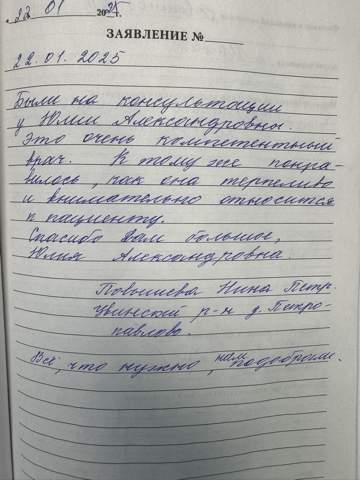 22 01 2025 г.
ЗАЯВЛЕНИЕ №
22.01.2025
Были на консультации
у Юлии Александровны.
Это очень компетентный
врач. К тому же понра-
вилось, как она терпеливо
и внимательно относится
к пациенту.
Спасибо Вам большое,
Юлия Александровна.
Нина Петр.
Увинский р-н д. Петро-
павлово.
Всё, что нужно, нам подобрали.